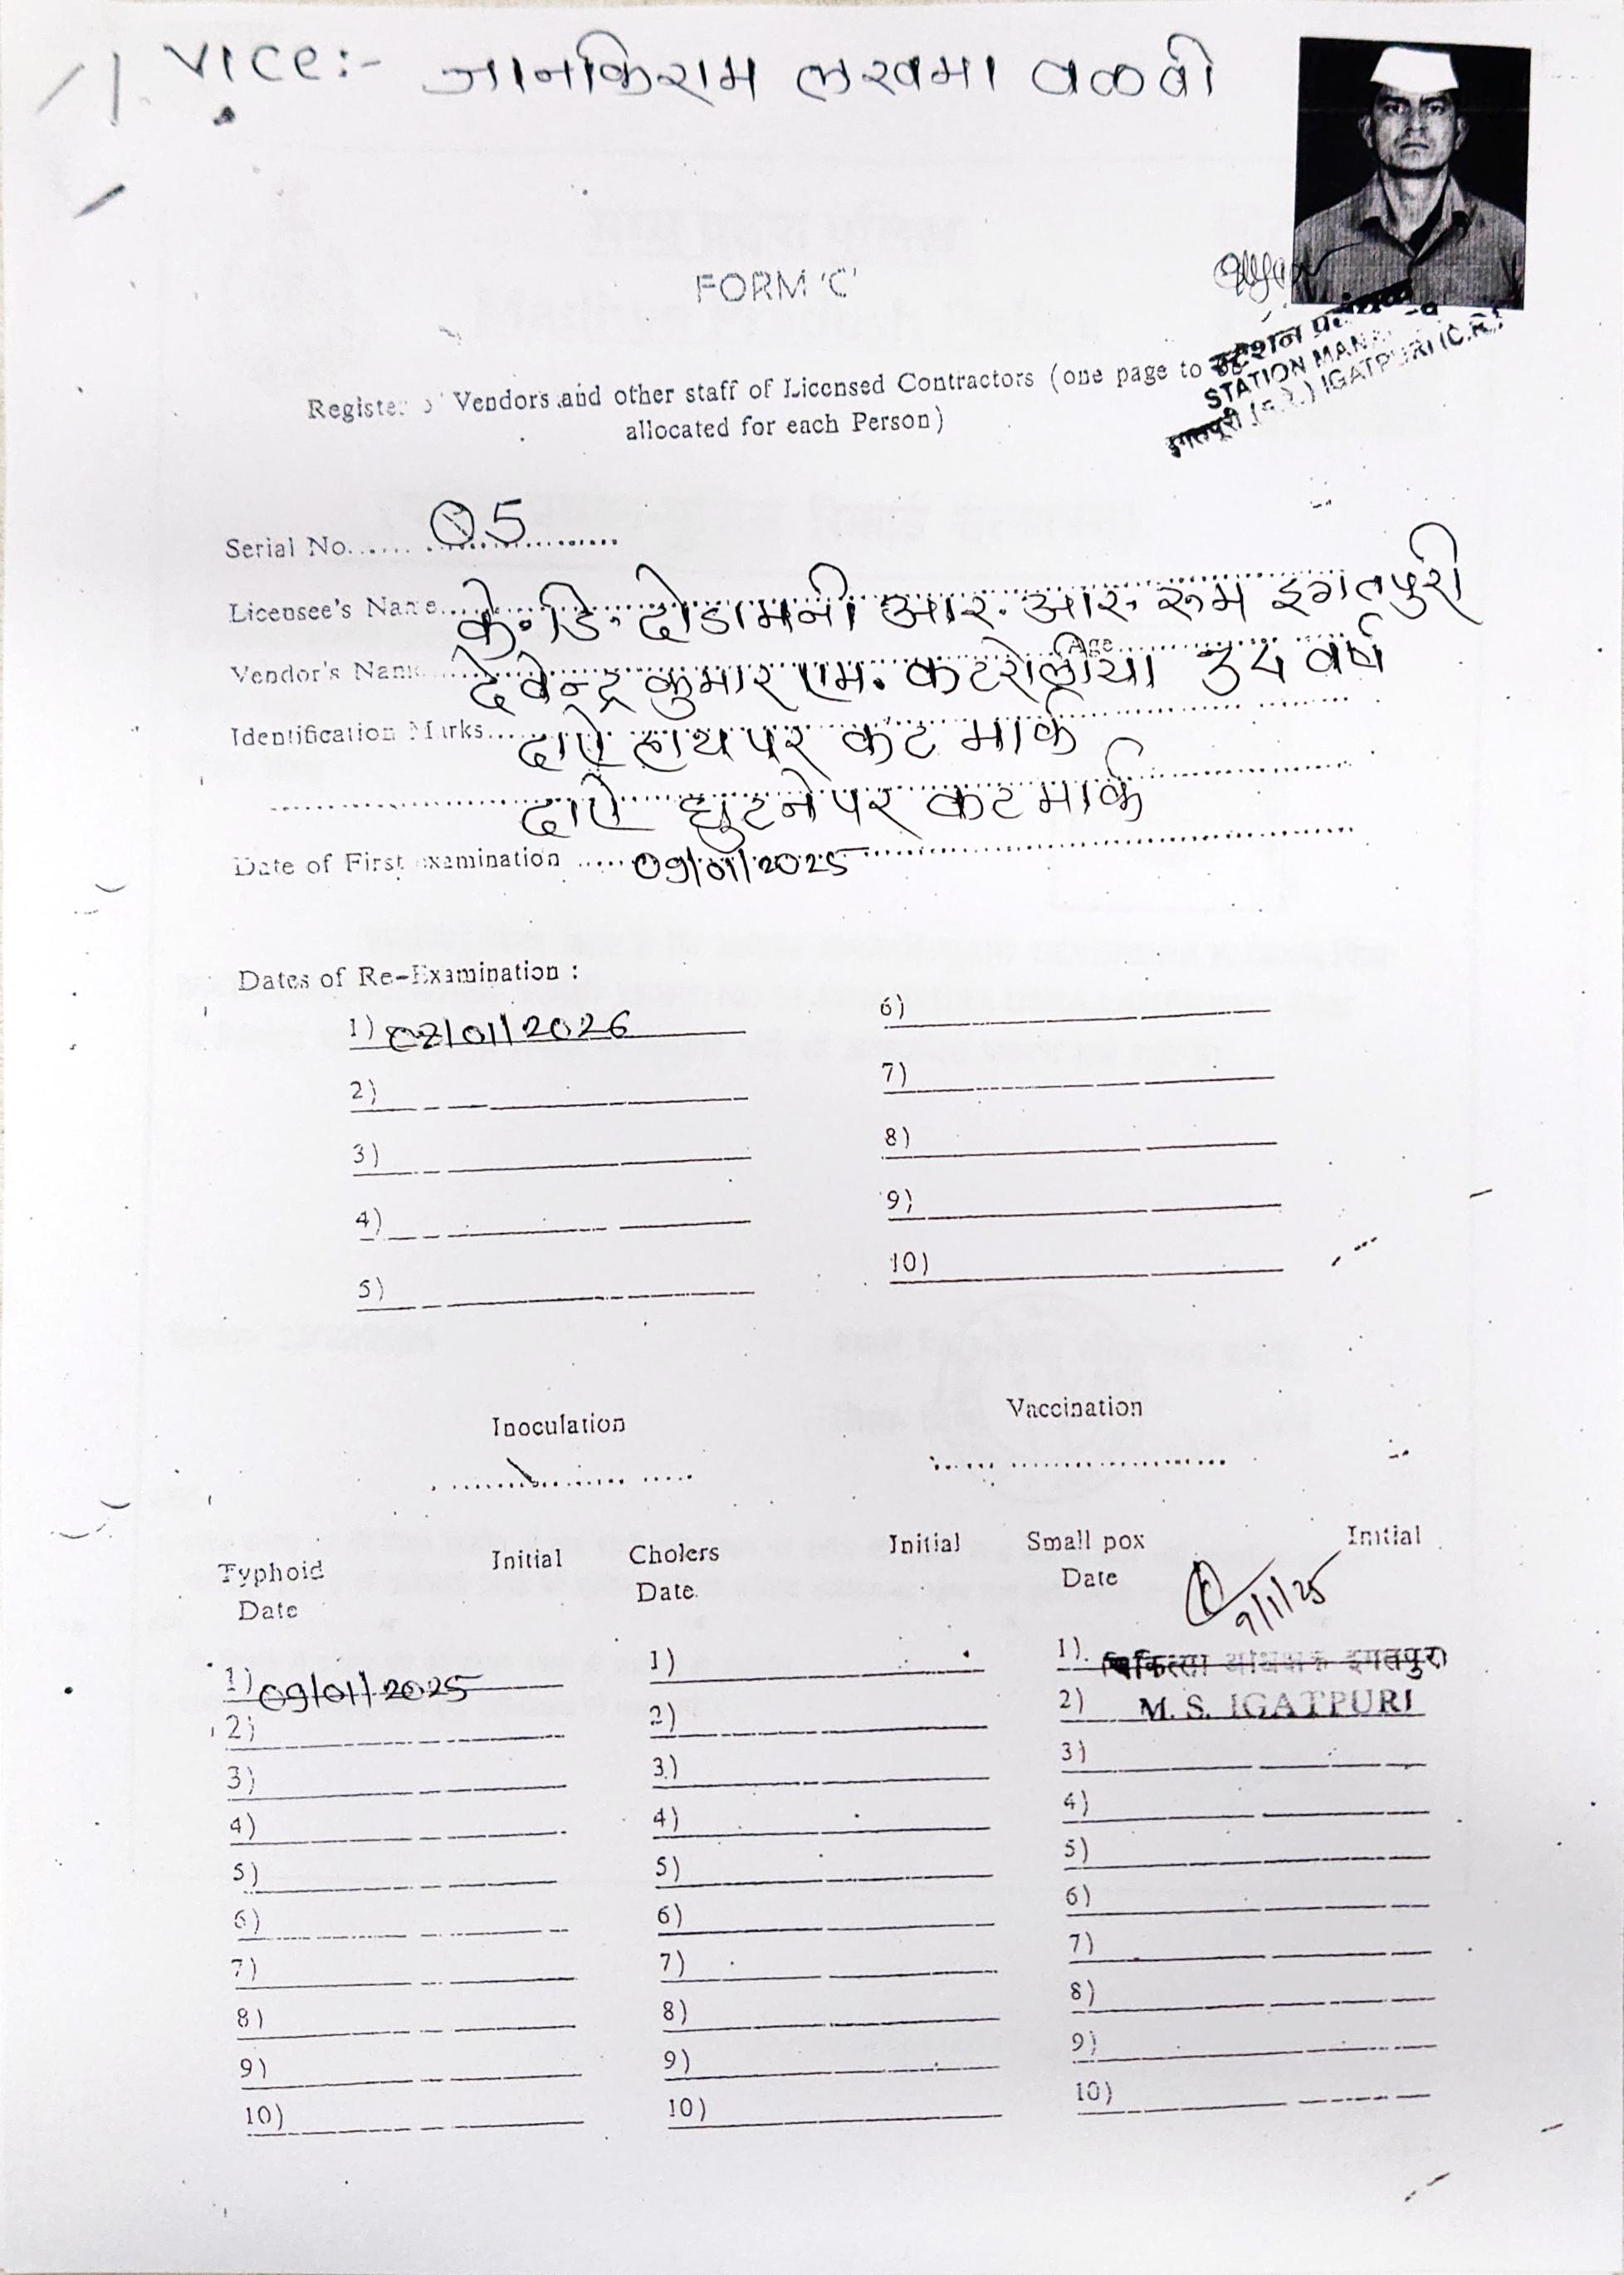 VICE:- जानकिराम लखमा वळवी
FORM 'C'
स्टेशन प्रबंधक
STATION MANA
इगतपुरी (म.रे.) IGATPURI (C.R.)
Register of Vendors and other staff of Licensed Contractors (one page to be
allocated for each Person)
Serial No. 05
Licensee's Name के. डि. दोडामनी आर. आर. रूम इगतपुरी
Vendor's Name देवेन्द्र कुमार एम. कटरोलीया Age 34 वर्ष
Identification Marks दाऐ हाथ पर कट मार्क
दाऐ घुटने पर कट मार्क
Date of First examination 09/01/2025
Dates of Re-Examination :
1) 02/01/2026 6)
2) 7)
3) 8)
4) 9)
5) 10)
Inoculation Vaccination
Typhoid Date Initial Cholers Date Initial Small pox Date Initial
9/1/25
1) 09/01/2025 1) 1) चिकित्सा अधिक्षक इगतपुरी
2) 2) 2) M. S. IGATPURI
3) 3) 3)
4) 4) 4)
5) 5) 5)
6) 6) 6)
7) 7) 7)
8) 8) 8)
9) 9) 9)
10) 10) 10)